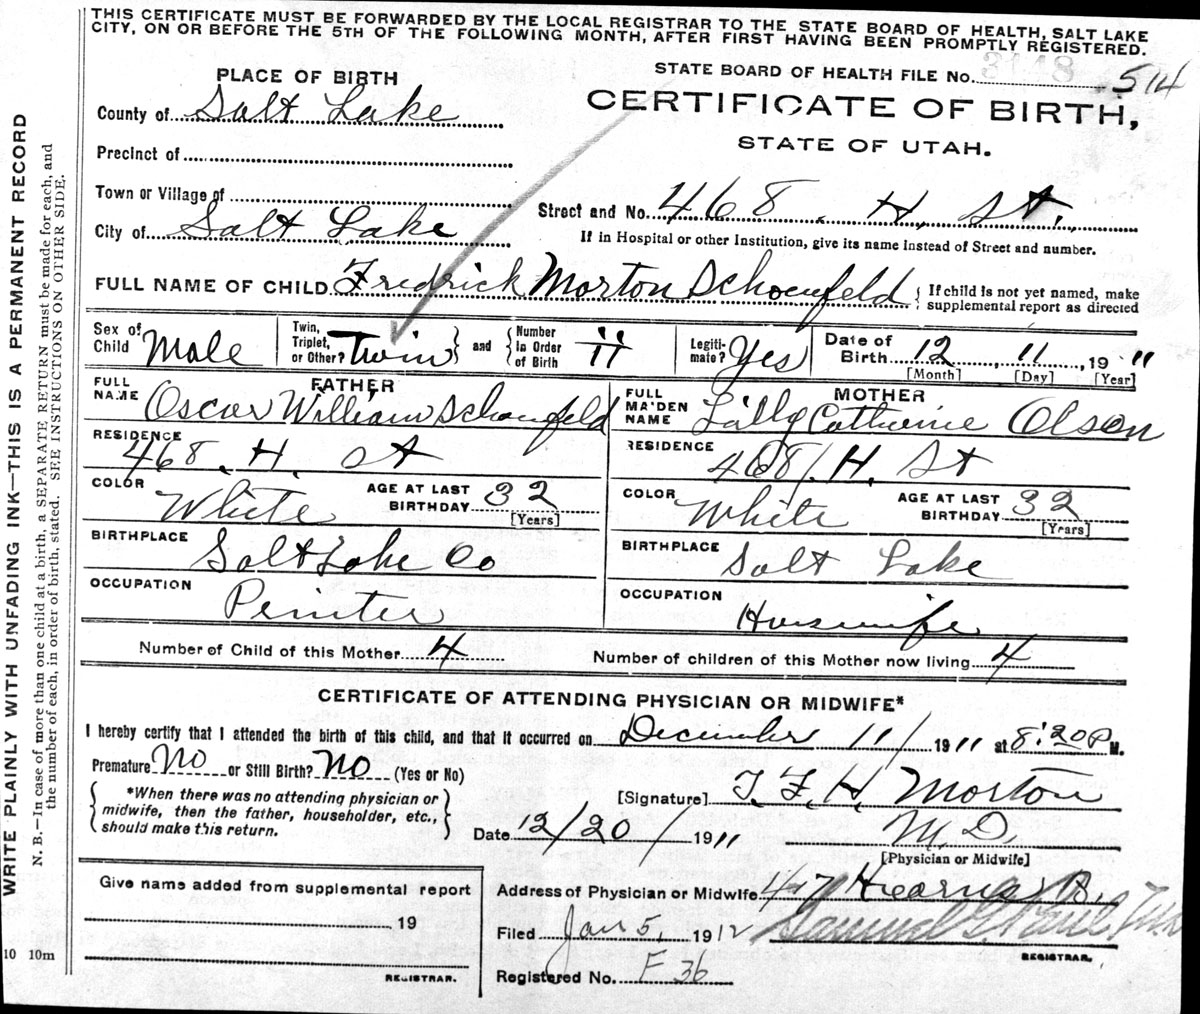 THIS CERTIFICATE MUST BE FORWARDED BY THE LOCAL REGISTRAR TO THE STATE BOARD OF HEALTH, SALT LAKE
CITY, ON OR BEFORE THE 5TH OF THE FOLLOWING MONTH, AFTER FIRST HAVING BEEN PROMPTLY REGISTERED.
WRITE PLAINLY WITH UNFADING INK—THIS IS A PERMANENT RECORD
N. B.—In case of more than one child at a birth, a SEPARATE RETURN must be made for each, and
the number of each, in order of birth, stated. SEE INSTRUCTIONS ON OTHER SIDE.
10 10m
PLACE OF BIRTH
County of Salt Lake
Precinct of
Town or Village of
City of Salt Lake
STATE BOARD OF HEALTH FILE No. 3148 514
CERTIFICATE OF BIRTH,
STATE OF UTAH.
Street and No. 468. H. St.
If in Hospital or other Institution, give its name instead of Street and number.
FULL NAME OF CHILD Fredrick Morton Schoenfeld { If child is not yet named, make
supplemental report as directed
Sex of
Child Male
Twin,
Triplet,
or Other? Twin } and { Number
in Order
of Birth 11
Legiti-
mate? Yes
Date of
Birth 12, 11, 19 11
[Month] [Day] [Year]
FATHER
FULL
NAME Oscar William Schoenfeld
RESIDENCE
468. H. St
COLOR White AGE AT LAST
BIRTHDAY 32
[Years]
BIRTHPLACE Salt Lake Co
OCCUPATION Peinter
MOTHER
FULL
MAIDEN
NAME Lilly Catherine Olson
RESIDENCE
468 H. St
COLOR White AGE AT LAST
BIRTHDAY 32
[Years]
BIRTHPLACE Salt Lake
OCCUPATION Housewife
Number of Child of this Mother 4
Number of children of this Mother now living 4
CERTIFICATE OF ATTENDING PHYSICIAN OR MIDWIFE*
I hereby certify that I attended the birth of this child, and that it occurred on December 11/ 1911 at 8:20 P M.
Premature No or Still Birth? No (Yes or No)
{ *When there was no attending physician or
midwife, then the father, householder, etc.,
should make this return. }
[Signature] T. F. H. Morton
Date 12/20/ 1911 M. D.
[Physician or Midwife]
Give name added from supplemental report
19
REGISTRAR.
Address of Physician or Midwife 417 Hearns B.
Filed Jan 5, 1912 Samuel G. Paul
REGISTRAR.
Registered No. F 36